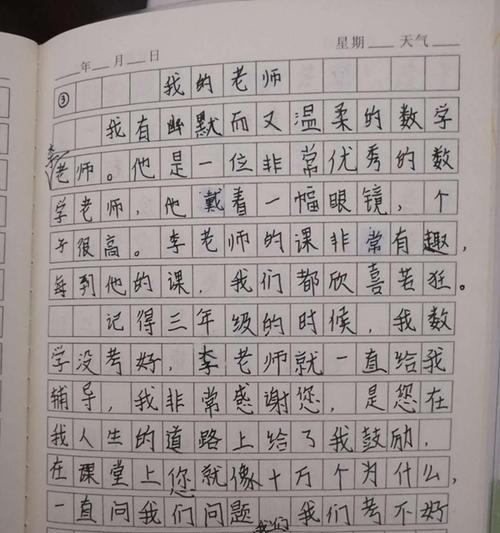 年 月 日 星期 天气
③ 我的老师
我有幽默而又温柔的数学
李
老师。他是一位非常优秀的数
学老师，他戴着一幅眼镜，个
子很高。李老师的课非常有趣，
每到他的课，我们都欣喜若狂。
记得三年级的时候，我数
学没考好，李老师就一直给我
辅导，我非常感谢您，是您在
我人生的道路上给了我鼓励，
在课堂上您就像十万个为什么，
一直问我们问题 我们考不好
我们